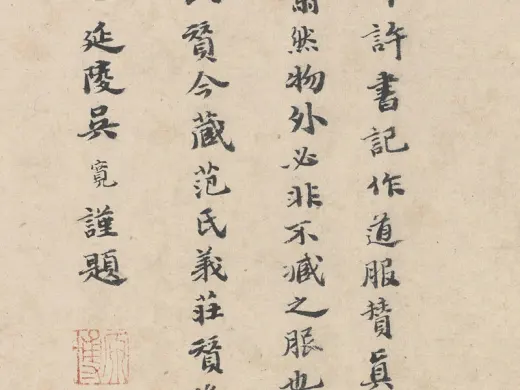 許書記作道服賛真
然物外必非不臧之服也
賢今藏范氏義莊賢
延陵吳寬謹題
原博